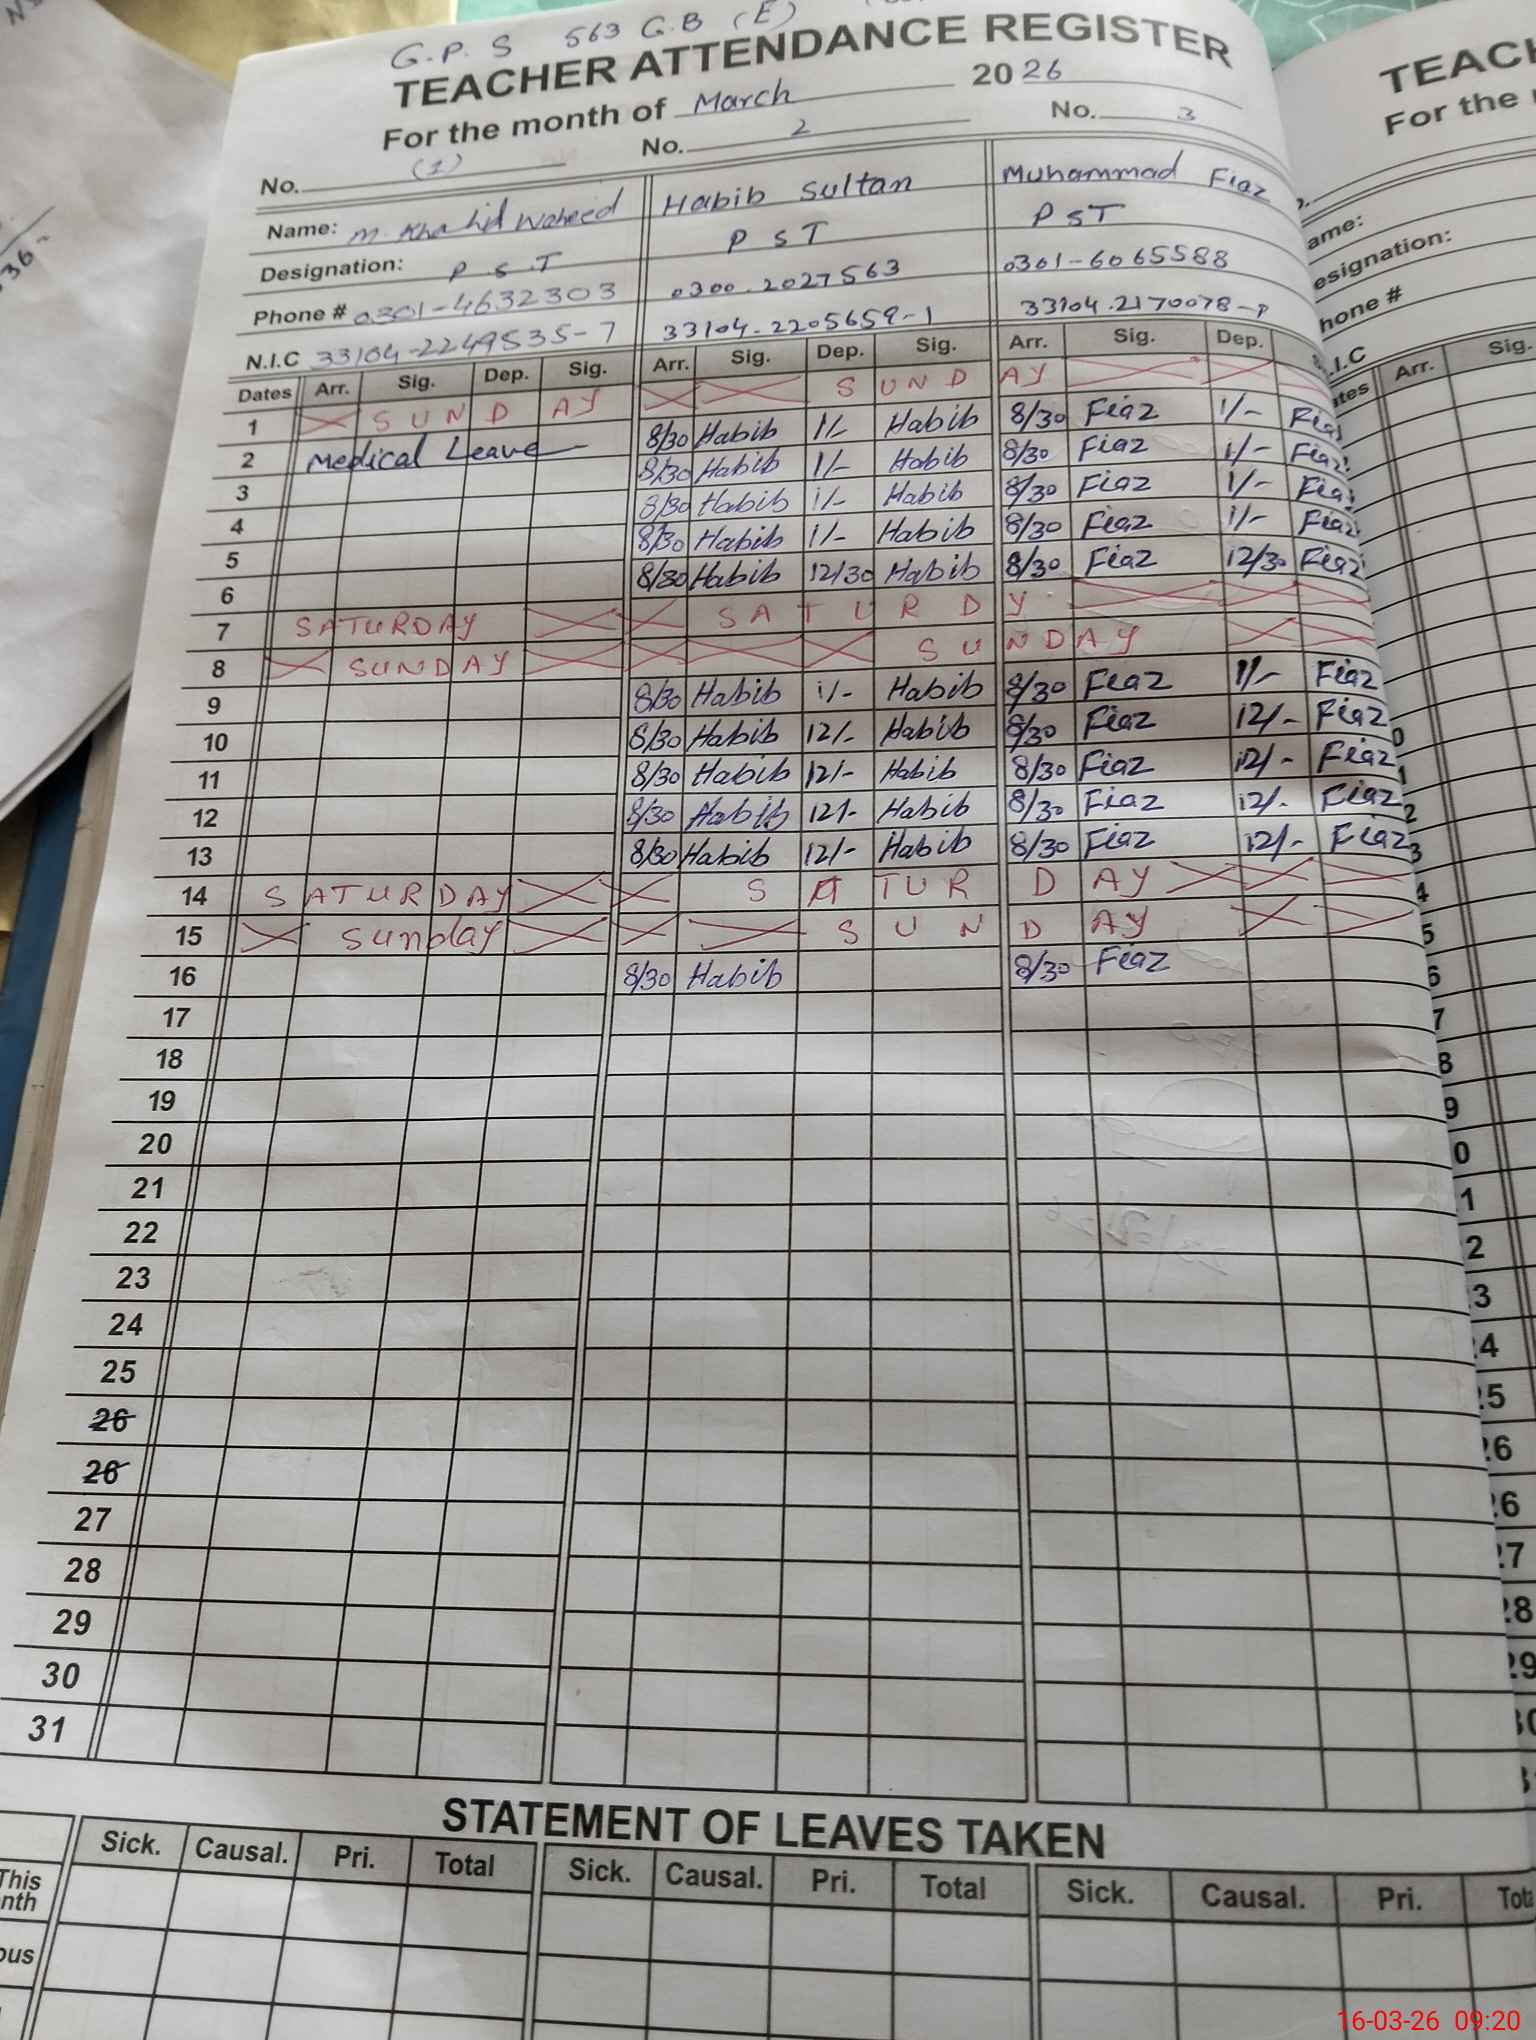 G.P.S 563 G.B (E)
TEACHER ATTENDANCE REGISTER
For the month of March 2026
No. (1) No. 2 No. 3
Name: M. Khalid Waheed Habib Sultan Muhammad Fiaz
Designation: P.S.T P S T P S T
Phone # 0301-4632303 0300.2027563 0301-6065588
N.I.C 33104-2249535-7 33104-2205659-1 33104.2170078-9
Dates Arr. Sig. Dep. Sig. Arr. Sig. Dep. Sig. Arr. Sig. Dep.
1 SUNDAY SUNDAY
2 Medical Leave 8/30 Habib 1/- Habib 8/30 Fiaz 1/- Fiaz
3 8/30 Habib 1/- Habib 8/30 Fiaz 1/- Fiaz
4 8/30 Habib 1/- Habib 8/30 Fiaz 1/- Fiaz
5 8/30 Habib 1/- Habib 8/30 Fiaz 1/- Fiaz
6 8/30 Habib 12/30 Habib 8/30 Fiaz 12/30 Fiaz
7 SATURDAY SATURDY
8 SUNDAY SUNDAY
9 8/30 Habib 1/- Habib 8/30 Fiaz 1/- Fiaz
10 8/30 Habib 12/- Habib 8/30 Fiaz 12/- Fiaz
11 8/30 Habib 12/- Habib 8/30 Fiaz 12/- Fiaz
12 8/30 Habib 12/- Habib 8/30 Fiaz 12/- Fiaz
13 8/30 Habib 12/- Habib 8/30 Fiaz 12/- Fiaz
14 SATURDAY SATURDAY
15 Sunday SUNDAY
16 8/30 Habib 8/30 Fiaz
17
18
19
20
21
22
23
24
25
26
26
27
28
29
30
31
STATEMENT OF LEAVES TAKEN
Sick. Causal. Pri. Total Sick. Causal. Pri. Total Sick. Causal. Pri.
This
16-03-26 09:20